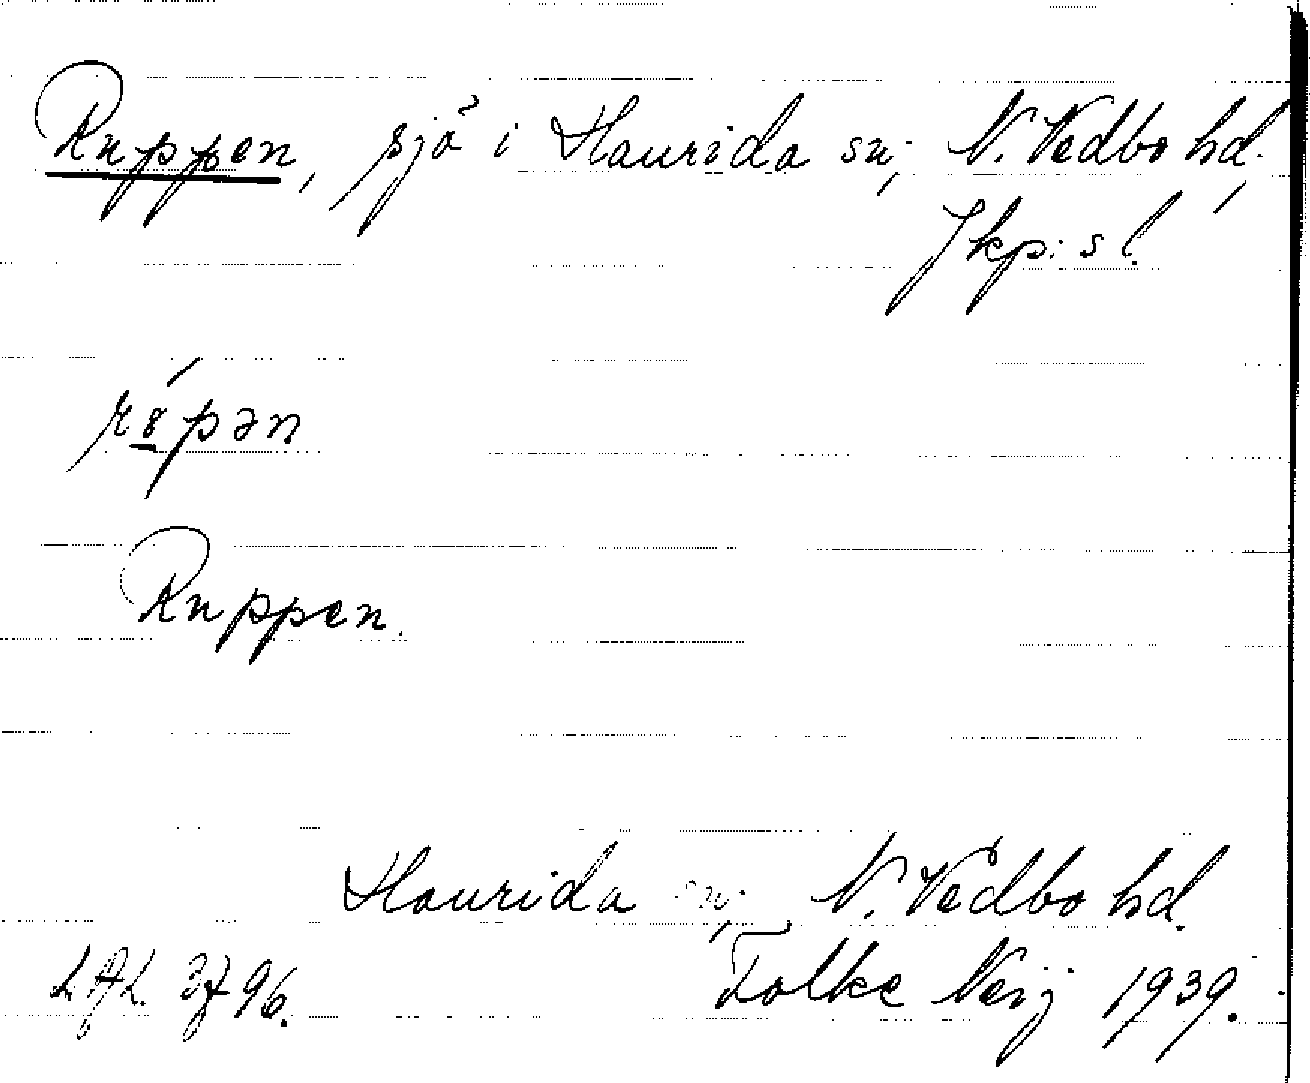 Ruppen, sjö i Haurida sn; N. Vedbo hd.
Jkp:s l.
Ruppen.
Haurida sn; N. Vedbo hd.
Folke Neij 1939.